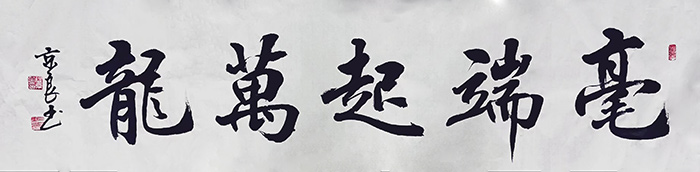 毫端起萬龍
京良书